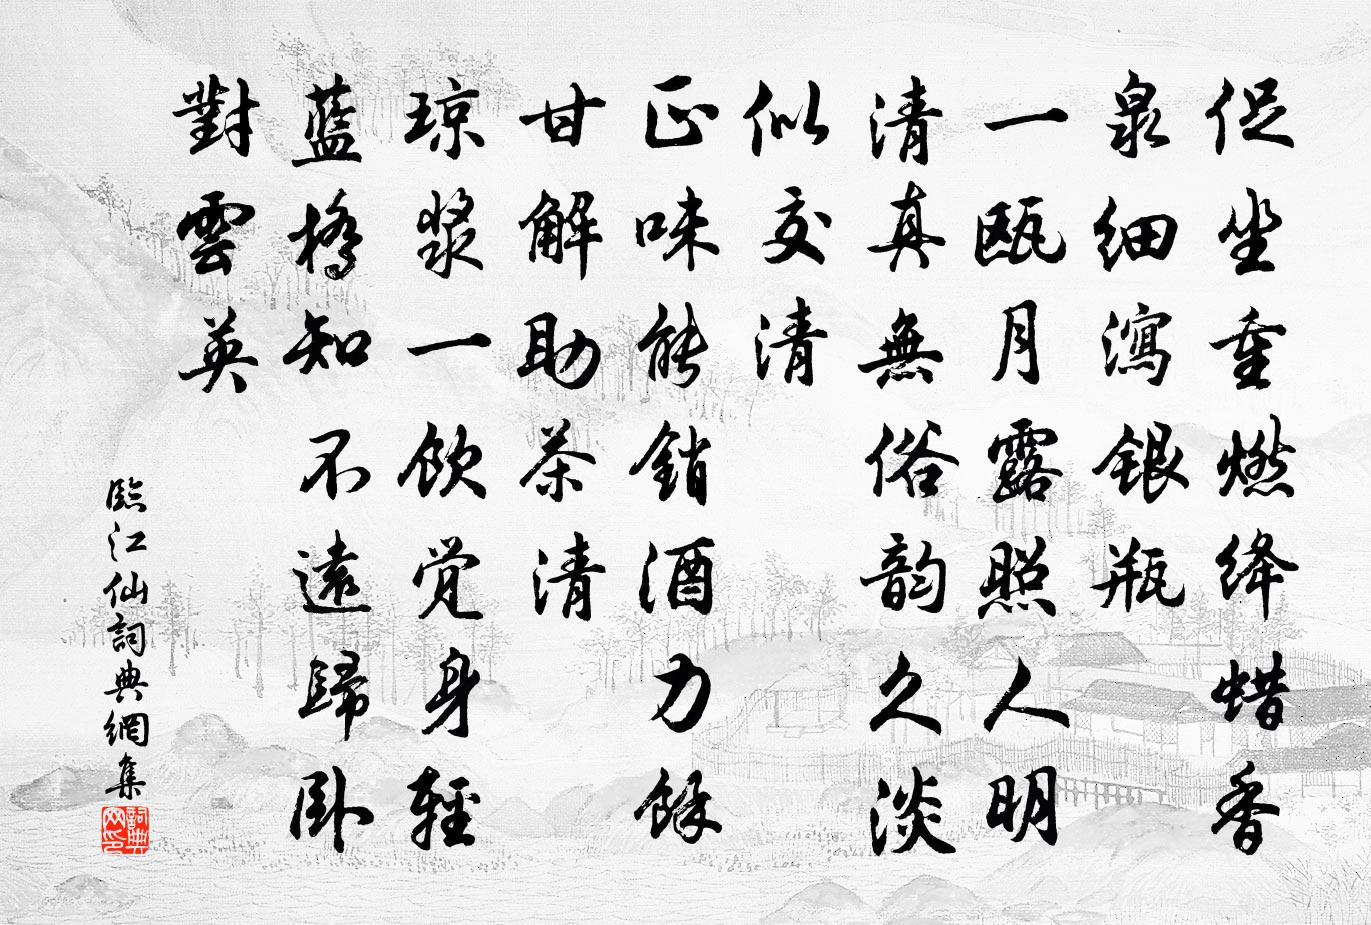 促坐重燃绛蜡香
泉细瀉银瓶
一瓯月露照人明
清真無俗韵久淡
似交清
正味能銷酒力餘
甘解助茶清
琼浆一飲觉身輕
蓝橋知不遠歸卧
對雲英
臨江仙詞典網集
詞典网印